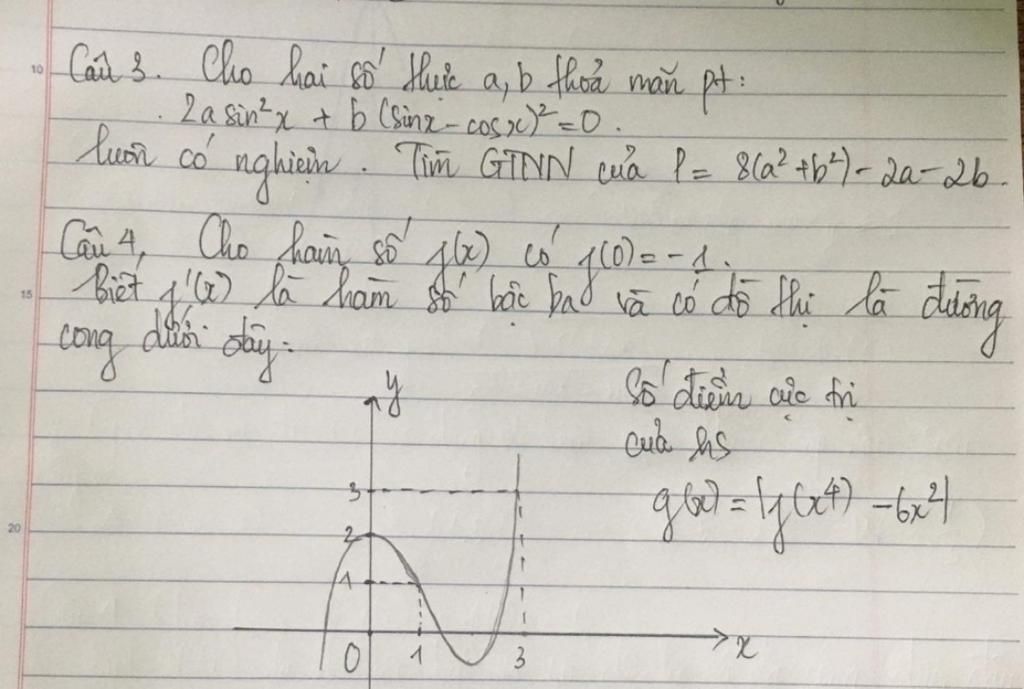 10
Câu 3. Cho hai số thực a, b thoả mãn pt:
2a sin²x + b (sinx - cosx)² = 0.
luôn có nghiệm. Tìm GTNN của P = 8(a² + b²) - 2a - 2b.
Câu 4, Cho hàm số f(x) có f(0) = -1.
15
Biết f'(x) là hàm số bậc ba và có đồ thị là đường
cong dưới đây:
y
Số điểm cực trị
của hs
3
g(x) = |f(x⁴) - 6x²|
20
2
1
0 1 3 x